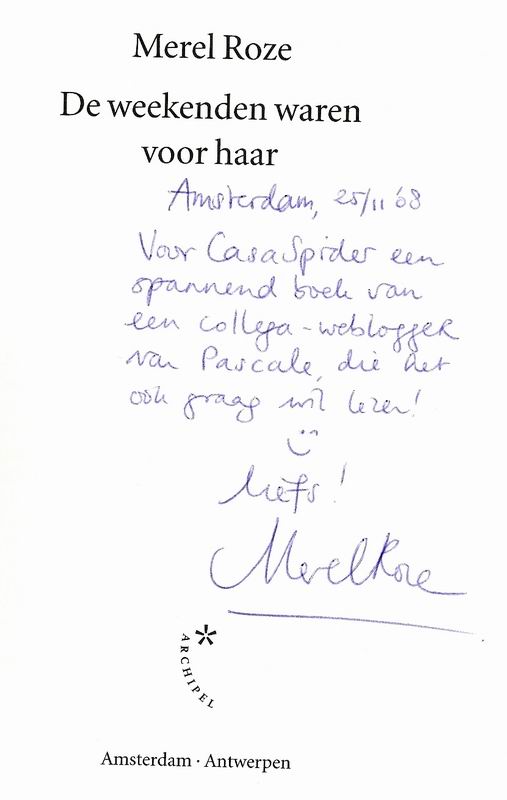 Merel Roze
De weekenden waren
voor haar
Amsterdam, 25/11 '08
Voor CasaSpider een
spannend boek van
een collega-weblogger
van Pascale, die het
ook graag wil lezen!
liefs!
Merel Roze
ARCHIPEL
Amsterdam · Antwerpen